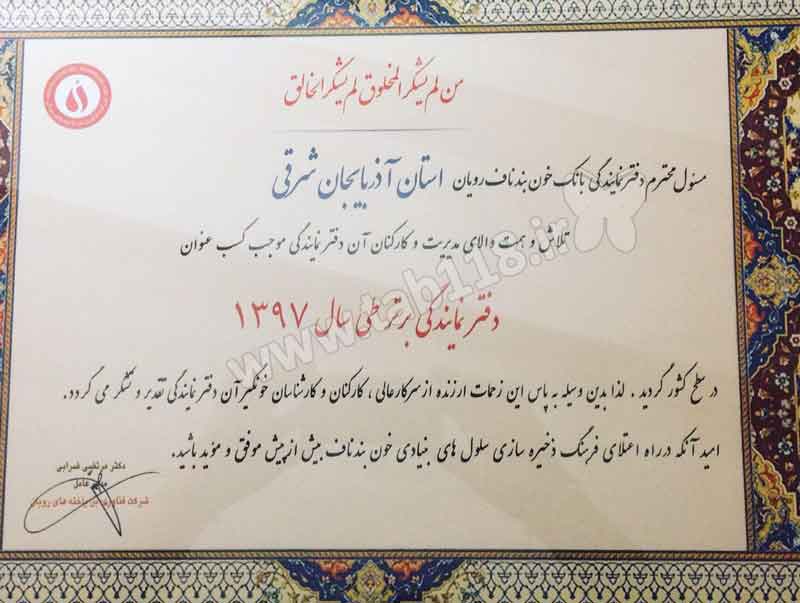 من لم یشکر المخلوق لم یشکر الخالق
مسئول محترم دفتر نمایندگی بانک خون بند ناف رویان استان آذربایجان شرقی
تلاش و همت والای مدیریت و کارکنان آن دفتر نمایندگی موجب کسب عنوان
دفتر نمایندگی برتر طی سال ۱۳۹۷
در سطح کشور گردید . لذا بدین وسیله به پاس این زحمات ارزنده از سرکار عالی ، کارکنان و کارشناسان خونگیر آن دفتر نمایندگی تقدیر و تشکر می گردد .
امید آنکه در راه اعتلای فرهنگ ذخیره سازی سلول های بنیادی خون بند ناف بیش از پیش موفق و مؤید باشید.
دکتر مرتضی ضرابی
مدیر عامل
شرکت فناوری بن یاخته های رویان
www.tab118.ir